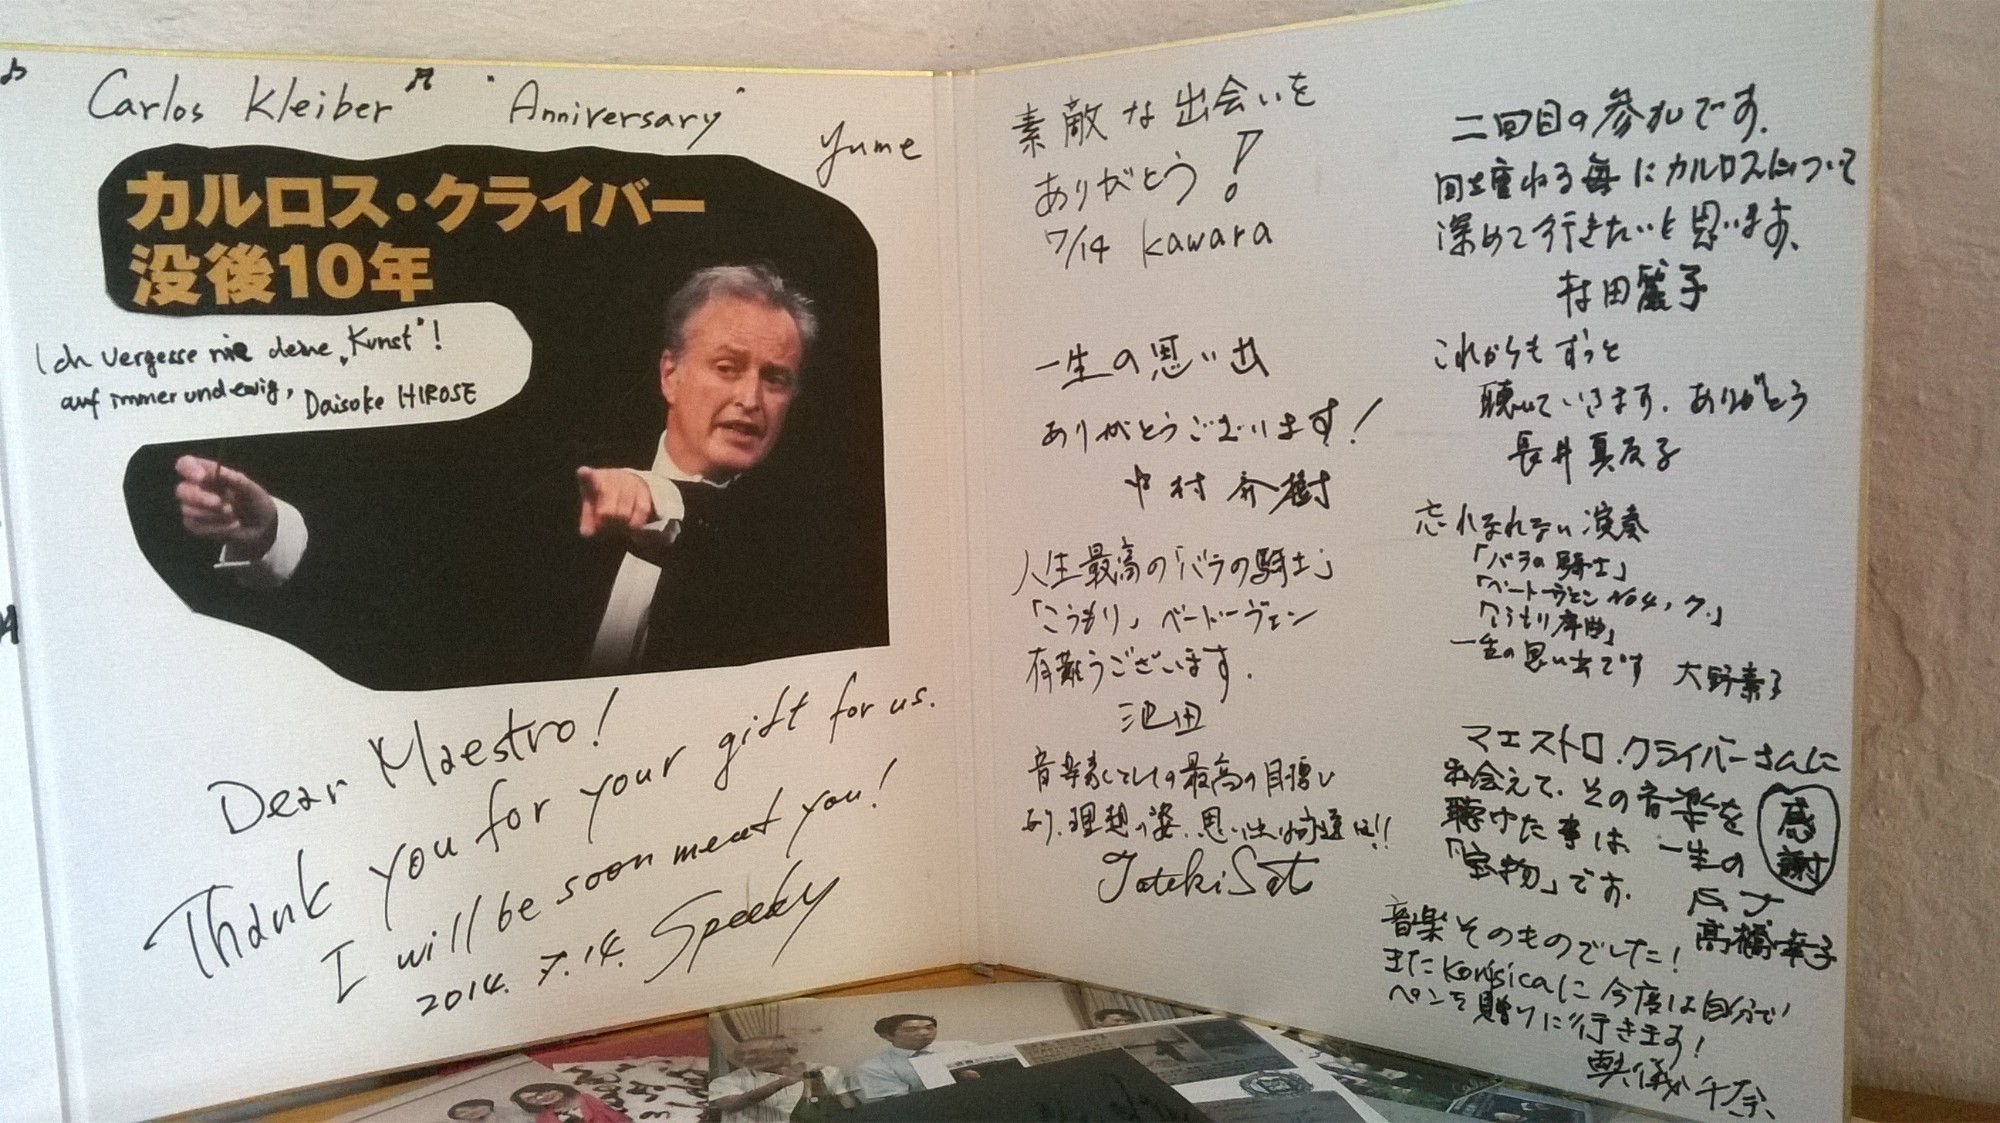 Carlos Kleiber "Anniversary"
Yume
カルロス・クライバー
没後10年
Ich vergesse nie deine „Kunst"!
auf immer und ewig,
Daisuke HIROSE
Dear Maestro!
Thank you for your gift for us.
I will be soon meat you!
2014. 7.14. Speedy
素敵な出会いを
ありがとう!
7/14 kawara
一生の思い出
ありがとうございます!
中村 介樹
人生最高の「バラの騎士」
「こうもり」ベートーヴェン
有難うございます.
池田
音楽家としての最高の目標で
あり、理想の姿、思い出は永遠に!!
二回目の参加です.
回を重ねる毎にカルロスについて
深めて行きたいと思います、
村田麗子
これからもずっと
聴いていきます. ありがとう
長井真友子
忘れられない演奏
「バラの騎士」
「ベートーヴェン No4, 7.」
「こうもり序曲」
一生の思い出です
大野素子
マエストロ.クライバーさんに
出会えて、その音楽を
聴けた事は 一生の
「宝物」です.
感謝
高橋幸子
音楽そのものでした!
またKorsicaに今度は自分で
ペンを贈りに行きます!